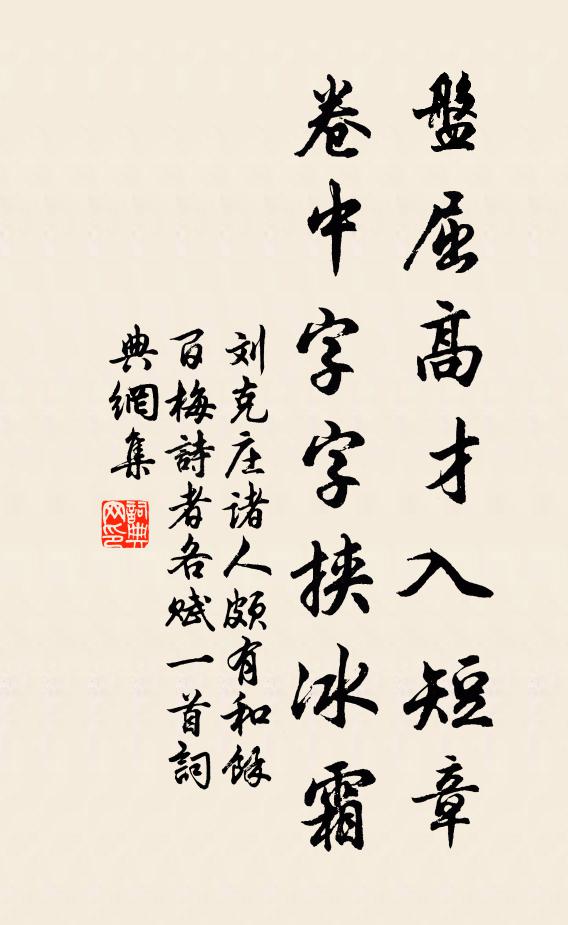 盤屈高才入短章
卷中字字挾冰霜
刘克庄諸人頗有和餘
百梅詩者各赋一首詞
典網集
詞典网印